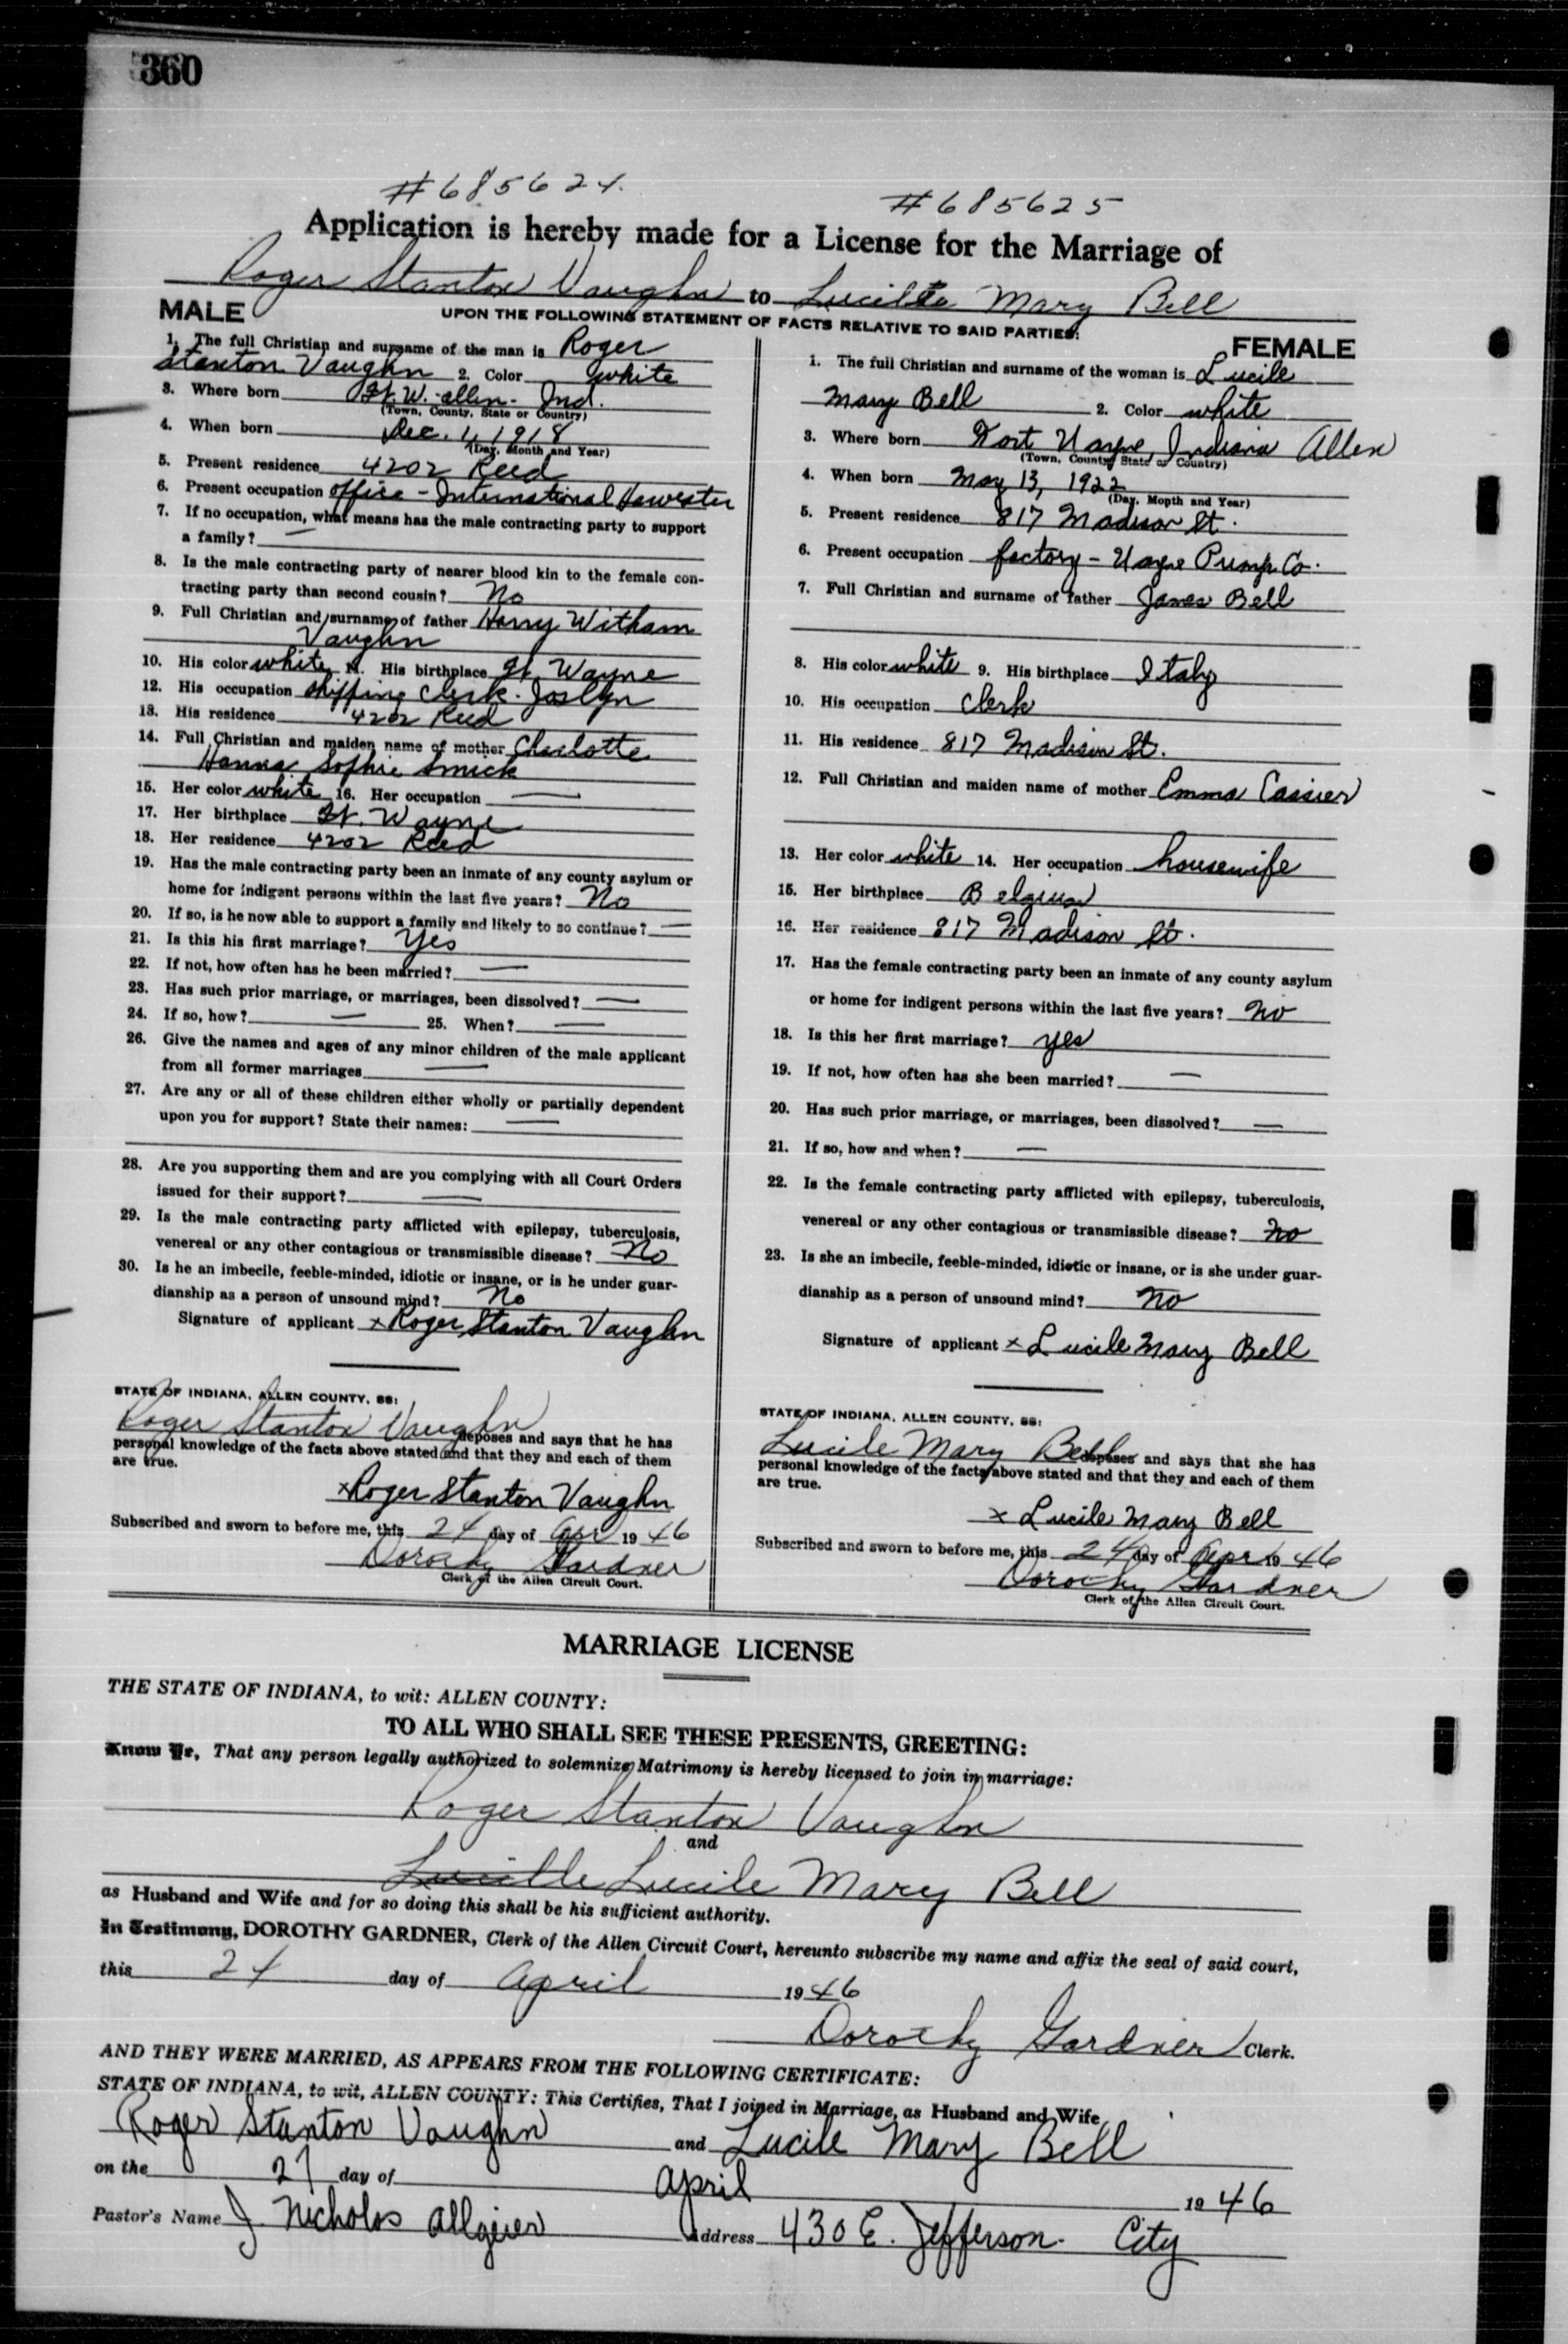 360
#685624.
#685625
Application is hereby made for a License for the Marriage of
Roger Stanton Vaughn to Lucille Mary Bell
UPON THE FOLLOWING STATEMENT OF FACTS RELATIVE TO SAID PARTIES:
MALE
1. The full Christian and surname of the man is Roger
Stanton Vaughn 2. Color white
3. Where born Ft. W. - Allen - Ind.
(Town, County, State or Country)
4. When born Dec. 1, 1918
(Day, Month and Year)
5. Present residence 4202 Reed
6. Present occupation office - International Harvester
7. If no occupation, what means has the male contracting party to support
a family? —
8. Is the male contracting party of nearer blood kin to the female con-
tracting party than second cousin? No
9. Full Christian and surname of father Harry Witham
Vaughn
10. His color white 11. His birthplace Ft. Wayne
12. His occupation shipping clerk - Joslyn
13. His residence 4202 Reed
14. Full Christian and maiden name of mother Charlotte
Hanna Sophie Smick
15. Her color white 16. Her occupation —
17. Her birthplace Ft. Wayne
18. Her residence 4202 Reed
19. Has the male contracting party been an inmate of any county asylum or
home for indigent persons within the last five years? No
20. If so, is he now able to support a family and likely to so continue? —
21. Is this his first marriage? Yes
22. If not, how often has he been married? —
23. Has such prior marriage, or marriages, been dissolved? —
24. If so, how? — 25. When? —
26. Give the names and ages of any minor children of the male applicant
from all former marriages —
27. Are any or all of these children either wholly or partially dependent
upon you for support? State their names: —
28. Are you supporting them and are you complying with all Court Orders
issued for their support? —
29. Is the male contracting party afflicted with epilepsy, tuberculosis,
venereal or any other contagious or transmissible disease? No
30. Is he an imbecile, feeble-minded, idiotic or insane, or is he under guar-
dianship as a person of unsound mind? No
Signature of applicant x Roger Stanton Vaughn
STATE OF INDIANA, ALLEN COUNTY, SS:
Roger Stanton Vaughn deposes and says that he has
personal knowledge of the facts above stated and that they and each of them
are true.
x Roger Stanton Vaughn
Subscribed and sworn to before me, this 24 day of Apr 1946
Dorothy Gardner
Clerk of the Allen Circuit Court.
FEMALE
1. The full Christian and surname of the woman is Lucile
Mary Bell 2. Color white
3. Where born Fort Wayne, Indiana Allen
(Town, County, State or Country)
4. When born May 13, 1922
(Day, Month and Year)
5. Present residence 817 Madison St.
6. Present occupation factory - Wayne Pump Co.
7. Full Christian and surname of father James Bell
8. His color white 9. His birthplace Italy
10. His occupation Clerk
11. His residence 817 Madison St.
12. Full Christian and maiden name of mother Emma Cassier
13. Her color white 14. Her occupation housewife
15. Her birthplace Belgium
16. Her residence 817 Madison St.
17. Has the female contracting party been an inmate of any county asylum
or home for indigent persons within the last five years? no
18. Is this her first marriage? yes
19. If not, how often has she been married? —
20. Has such prior marriage, or marriages, been dissolved? —
21. If so, how and when? —
22. Is the female contracting party afflicted with epilepsy, tuberculosis,
venereal or any other contagious or transmissible disease? no
23. Is she an imbecile, feeble-minded, idiotic or insane, or is she under guar-
dianship as a person of unsound mind? no
Signature of applicant x Lucile Mary Bell
STATE OF INDIANA, ALLEN COUNTY, SS:
Lucile Mary Bell deposes and says that she has
personal knowledge of the facts above stated and that they and each of them
are true.
x Lucile Mary Bell
Subscribed and sworn to before me, this 24 day of Apr 1946
Dorothy Gardner
Clerk of the Allen Circuit Court.
MARRIAGE LICENSE
THE STATE OF INDIANA, to wit: ALLEN COUNTY:
TO ALL WHO SHALL SEE THESE PRESENTS, GREETING:
Know Ye, That any person legally authorized to solemnize Matrimony is hereby licensed to join in marriage:
Roger Stanton Vaughn
and
Lucille Lucile Mary Bell
as Husband and Wife and for so doing this shall be his sufficient authority.
In Testimony, DOROTHY GARDNER, Clerk of the Allen Circuit Court, hereunto subscribe my name and affix the seal of said court,
this 24 day of April 1946
Dorothy Gardner Clerk.
AND THEY WERE MARRIED, AS APPEARS FROM THE FOLLOWING CERTIFICATE:
STATE OF INDIANA, to wit, ALLEN COUNTY: This Certifies, That I joined in Marriage, as Husband and Wife
Roger Stanton Vaughn and Lucile Mary Bell
on the 27 day of April 1946
Pastor's Name J. Nicholas Allgeier Address 430 E. Jefferson - City